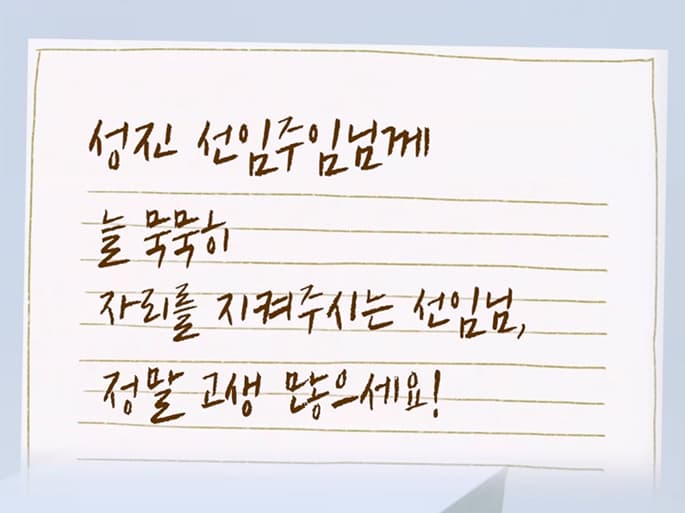 성진 선임주임님께
늘 묵묵히
자리를 지켜주시는 선임님,
정말 고생 많으세요!